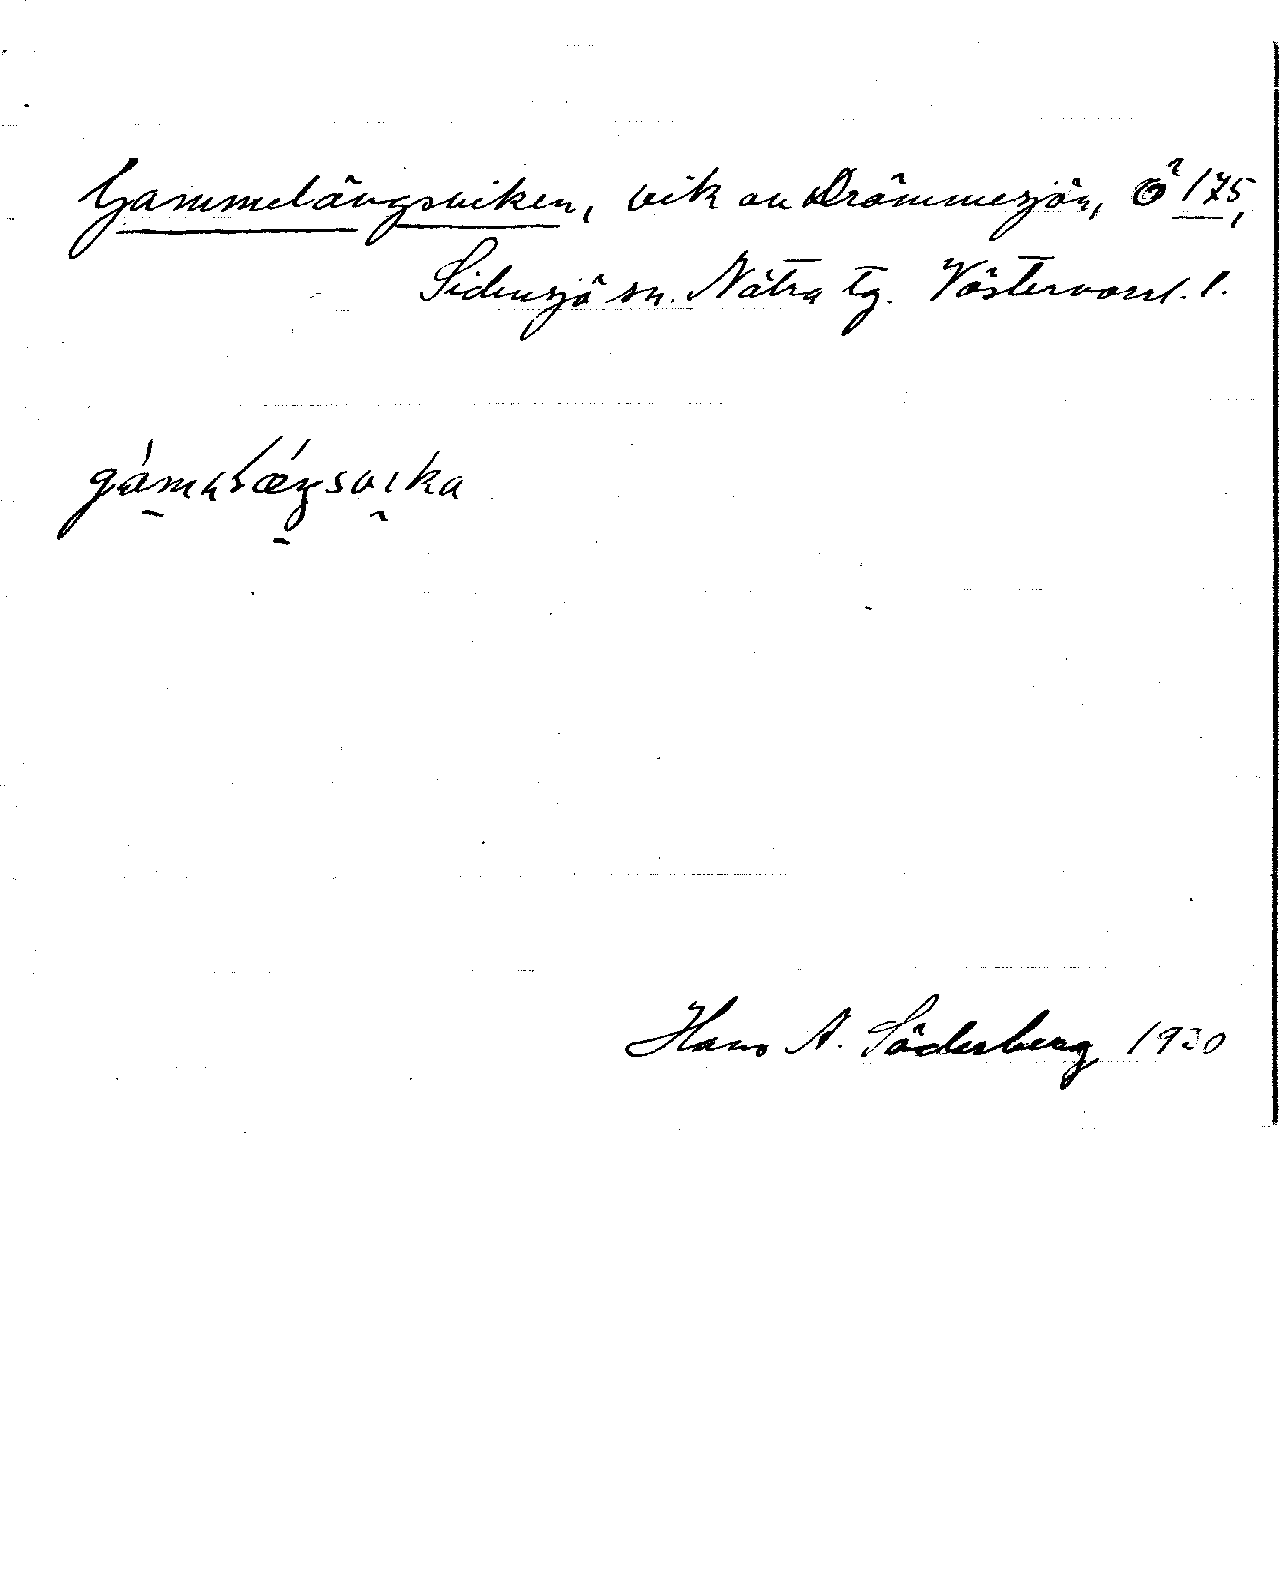 Gammelängsviken, vik av Drömmesjön, Ö 175,
Sidensjö sn. Nätra tg. Västernorrl. l.
Hans A. Söderberg 1930